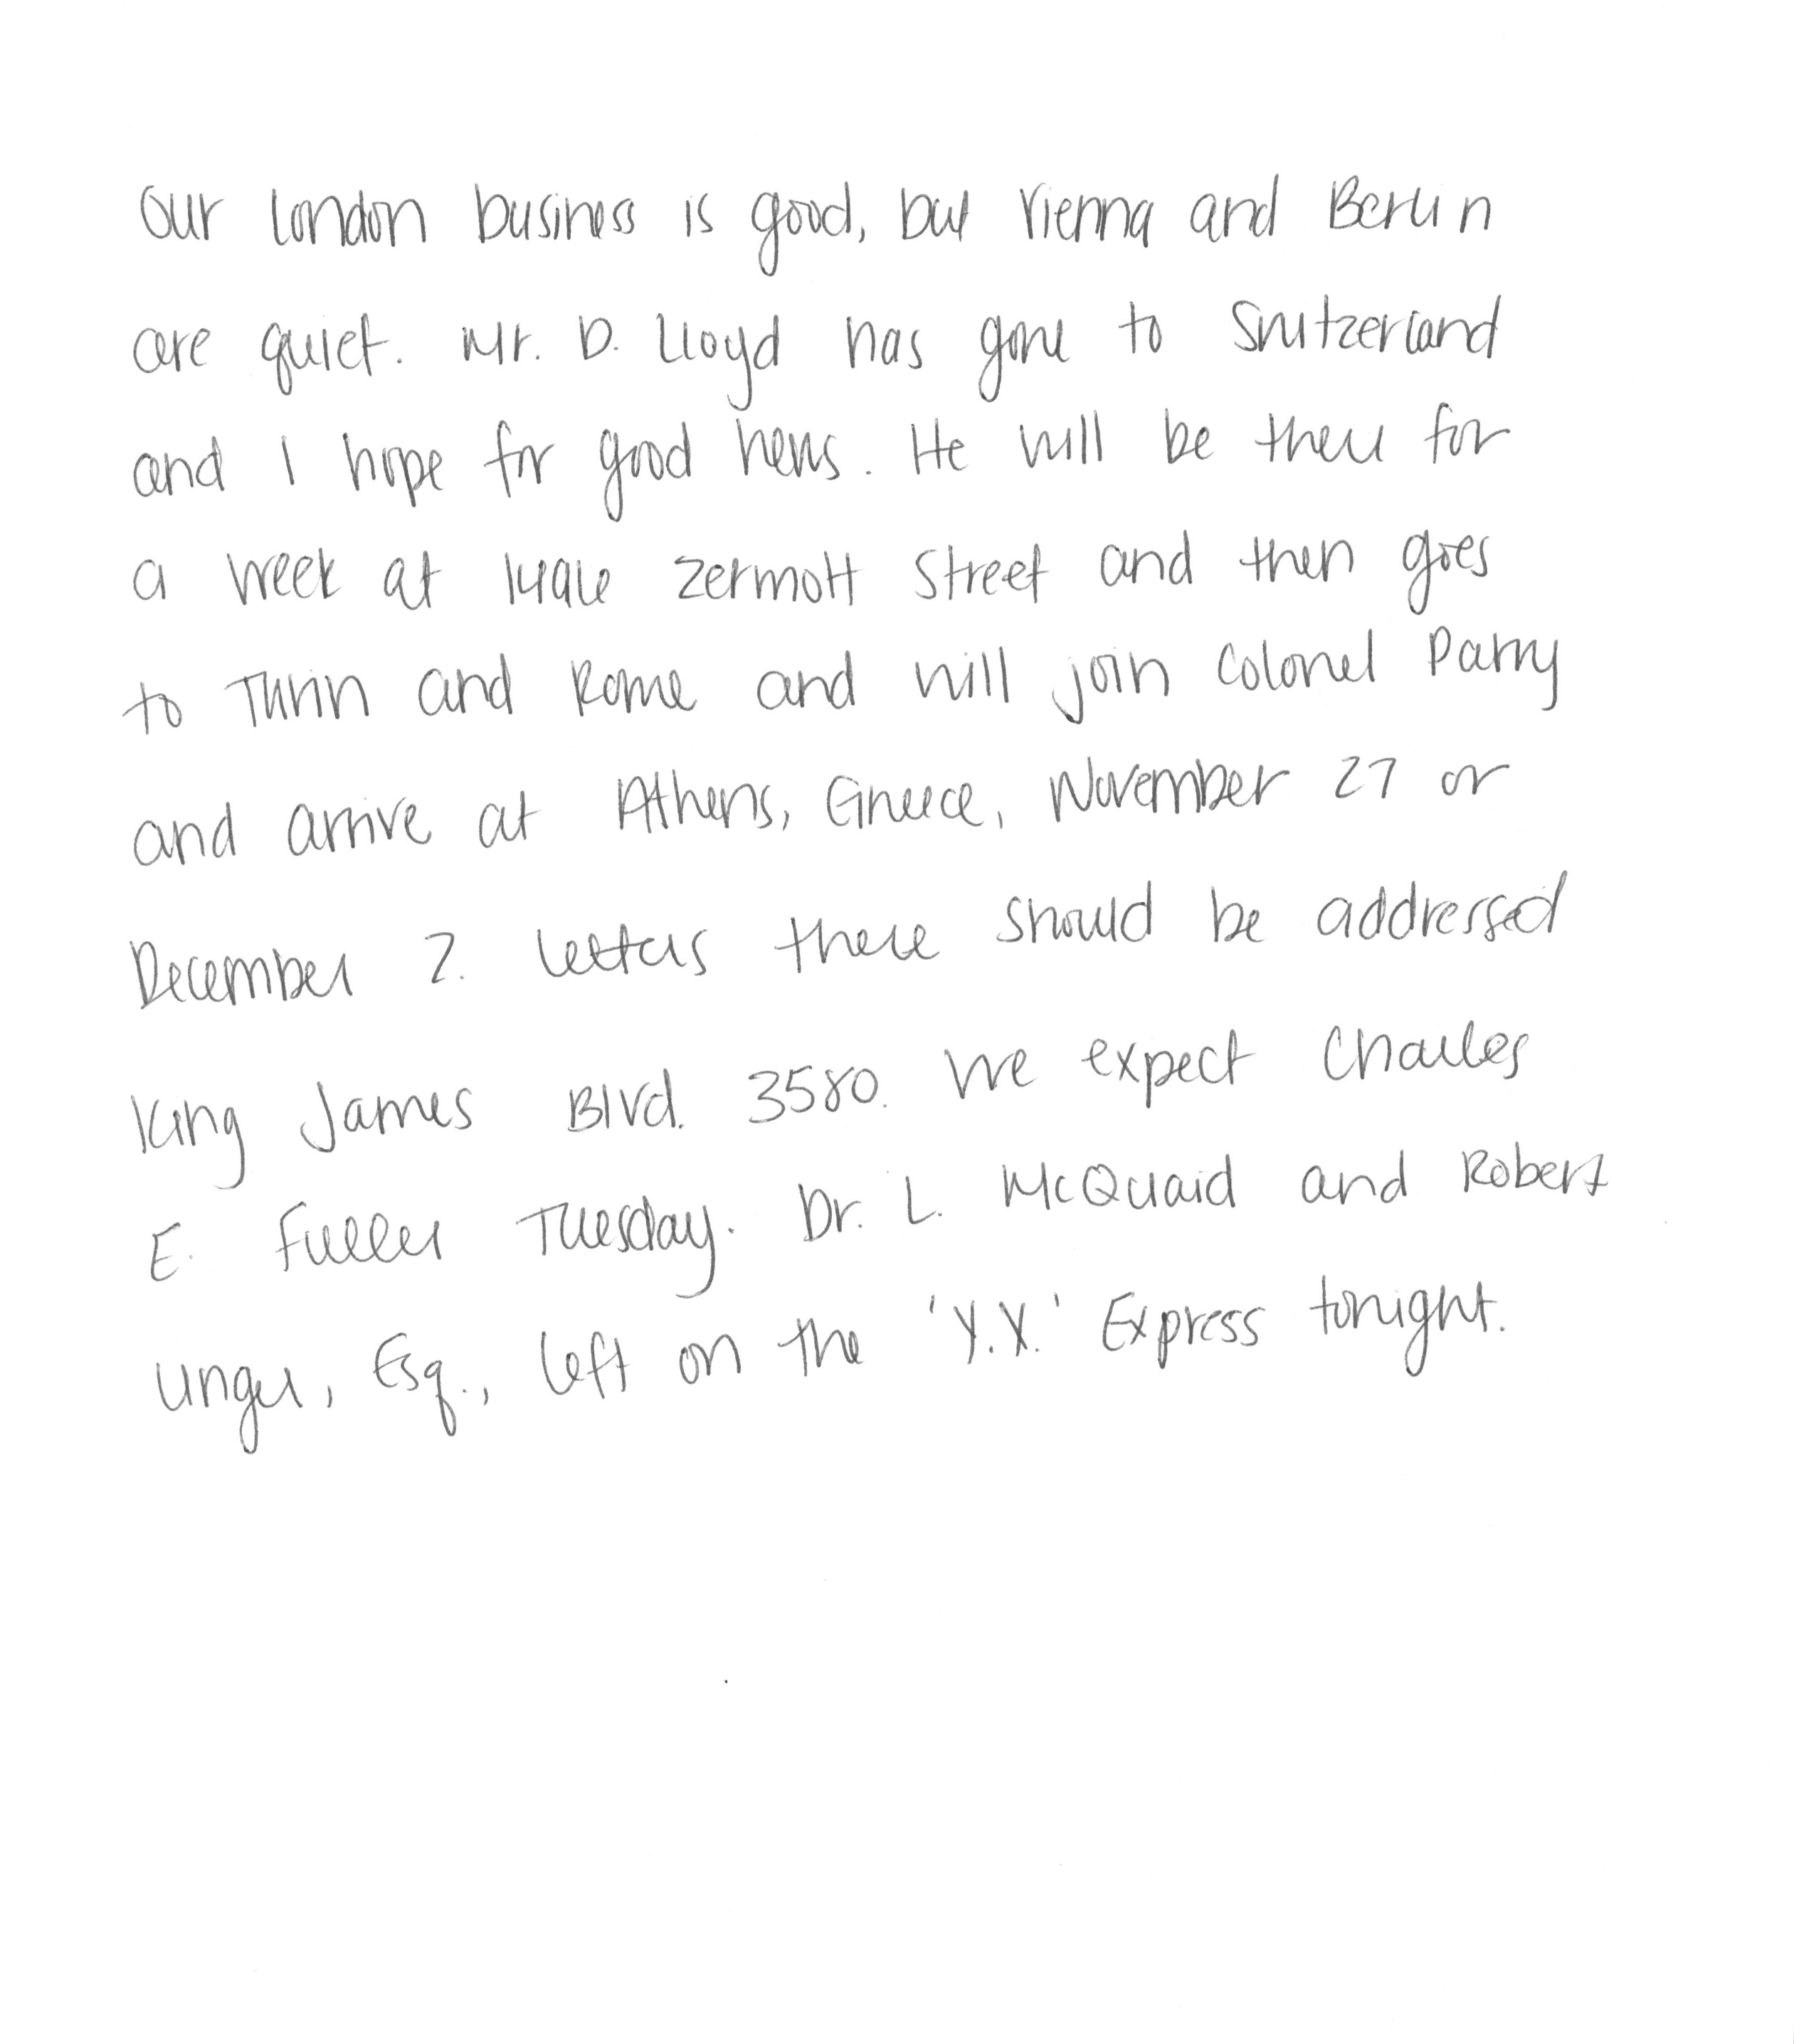 Our London business is good, but Vienna and Berlin
are quiet. Mr. D. Lloyd has gone to Switzerland
and I hope for good news. He will be there for
a week at Zermott Street and then goes
to Turin and Rome and will join Colonel Parry
and arrive at Athens, Greece, November 27 or
December 2. Letters there should be addressed
King James Blvd. 3580. We expect Charles
E. Fuller Tuesday. Dr. L. McQuaid and Robert
Unger, Esq., left on the 'Y.X.' Express tonight.